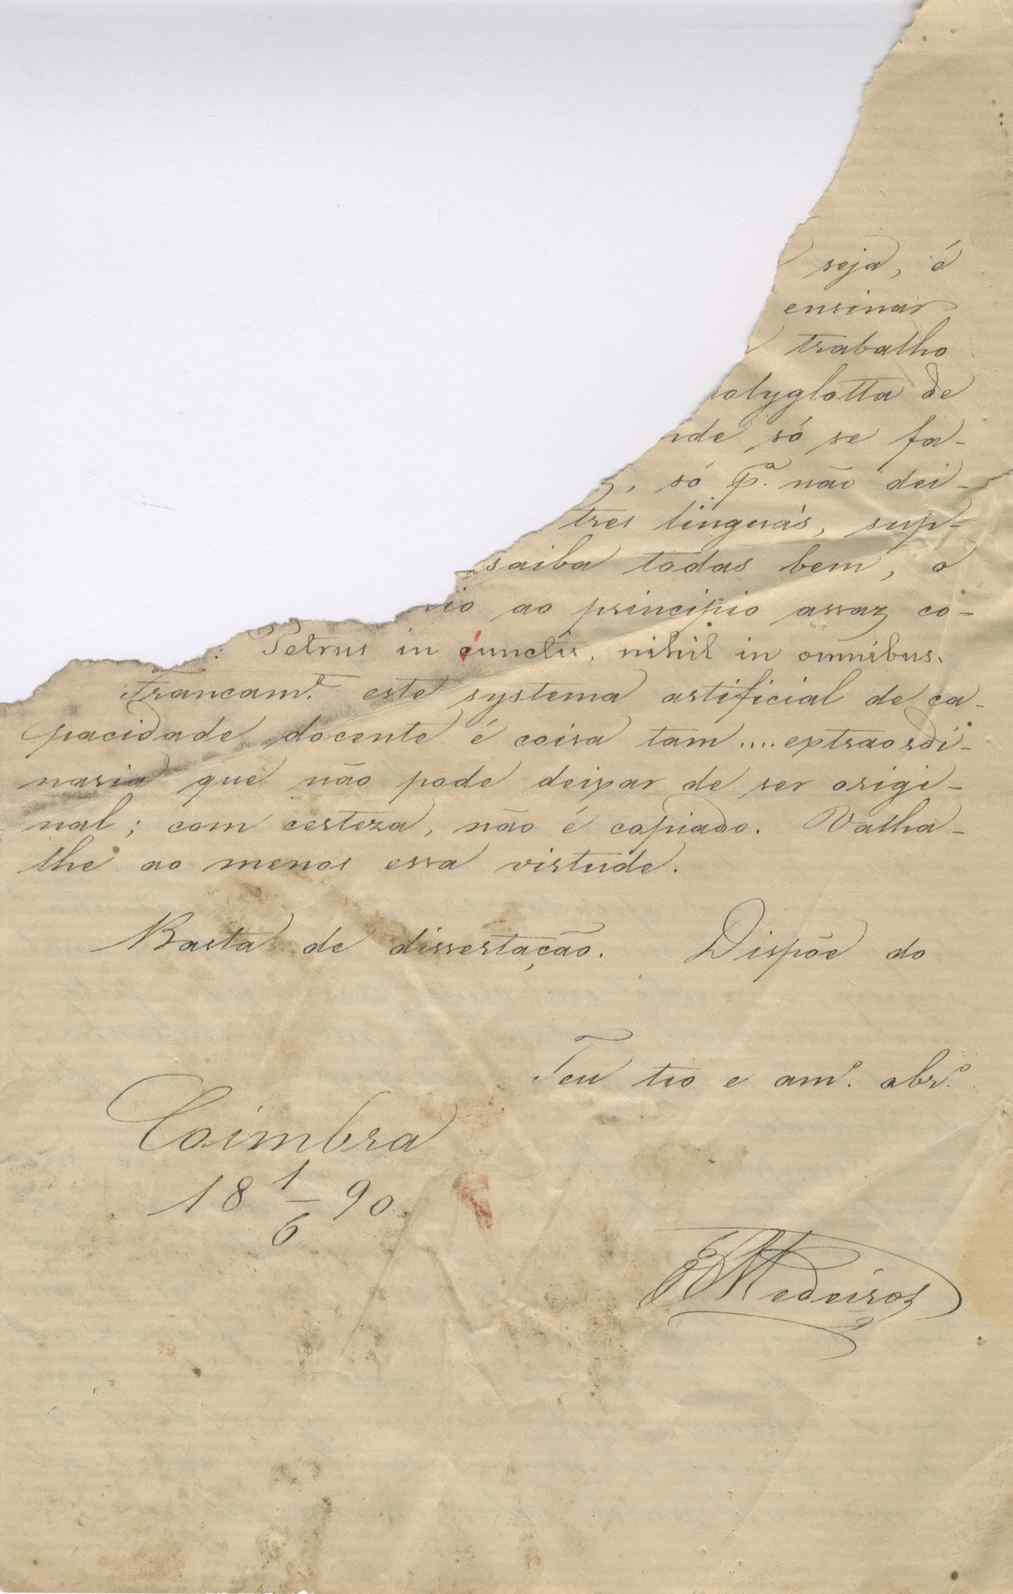 seja, é
ensinar
trabalho
olyglotta de
nde só se fa-
, só q.ᵃ não dei-
tres linguas, sup-
saiba todas bem, o
io ao principio assaz co-
: Petrus in cunctis, nihil in omnibus.
Francam.ᵉ este systema artificial de ca-
pacidade docente é coisa tam.... extraordi-
naria que não pode deixar de ser origi-
nal; com certeza, não é copiado. Valha-
lhe ao menos essa virtude.
Basta de dissertação. Dispõe do
Teu tio e am.º obr.º
Coimbra
18 1/6 90.
Medeiros